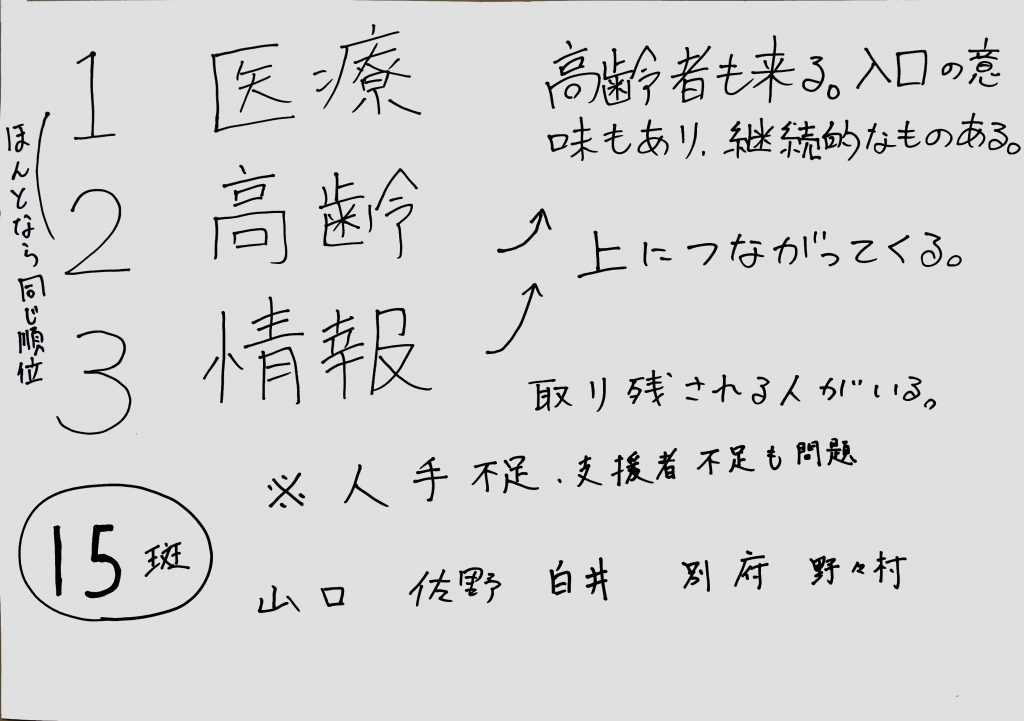 ほんとなら同じ順位
1 医療
高齢者も来る。入口の意
味もあり、継続的なものある。
2 高齢
上につながってくる。
3 情報
取り残される人がいる。
※ 人手不足、支援者不足も問題
15斑
山口 佐野 白井 別府 野々村